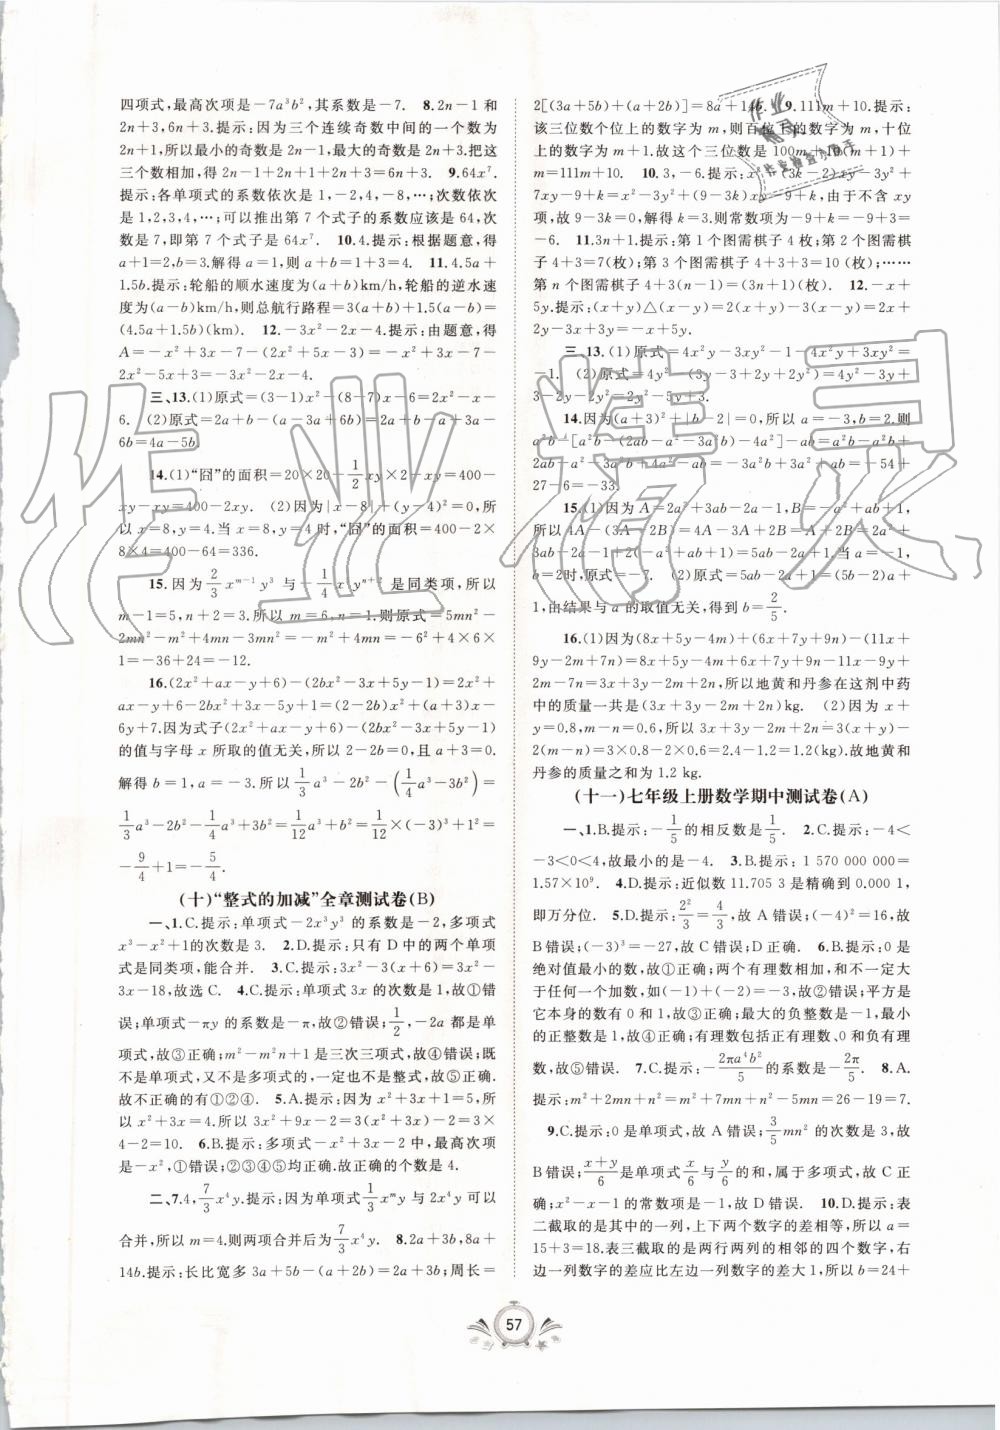 四项式,最高次项是-7a³b²,其系数是-7. 8.2n-1和
2n+3,6n+3.提示:因为三个连续奇数中间的一个数为
2n+1,所以最小的奇数是2n-1,最大的奇数是2n+3.把这
三个数相加,得2n-1+2n+1+2n+3=6n+3. 9.64x⁷.
提示:各单项式的系数依次是1,-2,4,-8,…;次数依次
是1,2,3,4,…;可以推出第7个式子的系数应该是64,次
数是7,即第7个式子是64x⁷. 10.4.提示:根据题意,得
a+1=2,b=3.解得a=1,则a+b=1+3=4. 11.4.5a+
1.5b.提示:轮船的顺水速度为(a+b)km/h,轮船的逆水速
度为(a-b)km/h,则总航行路程=3(a+b)+1.5(a-b)=
(4.5a+1.5b)(km). 12.-3x²-2x-4.提示:由题意,得
A=-x²+3x-7-(2x²+5x-3)=-x²+3x-7-
2x²-5x+3=-3x²-2x-4.
三、13.(1)原式=(3-1)x²-(8-7)x-6=2x²-x-
6. (2)原式=2a+b-(a-3a+6b)=2a+b-a+3a-
6b=4a-5b.
14.(1)“囧”的面积=20×20-1/2xy×2-xy=400-
xy-xy=400-2xy. (2)因为|x-8|+(y-4)²=0,所
以x=8,y=4.当x=8,y=4时,“囧”的面积=400-2×
8×4=400-64=336.
15.因为2/3x^(m-1)y³与-1/4x⁵y^(n+2)是同类项,所以
m-1=5,n+2=3,所以m=6,n=1.则原式=5mn²-
2mn²-m²+4mn-3mn²=-m²+4mn=-6²+4×6×
1=-36+24=-12.
16.(2x²+ax-y+6)-(2bx²-3x+5y-1)=2x²+
ax-y+6-2bx²+3x-5y+1=(2-2b)x²+(a+3)x-
6y+7.因为式子(2x²+ax-y+6)-(2bx²-3x+5y-1)
的值与字母x所取的值无关,所以2-2b=0,且a+3=0.
解得b=1,a=-3.所以1/3a³-2b²-(1/4a³-3b²)=
1/3a³-2b²-1/4a³+3b²=1/12a³+b²=1/12×(-3)³+1²=
-9/4+1=-5/4.
(十)“整式的加减”全章测试卷(B)
一、1.C.提示:单项式-2x³y³的系数是-2,多项式
x³-x²+1的次数是3. 2.D.提示:只有D中的两个单项
式是同类项,能合并. 3.C.提示:3x²-3(x+6)=3x²-
3x-18,故选C. 4.C.提示:单项式3x的次数是1,故①错
误;单项式-πy的系数是-π,故②错误;1/2,-2a都是单
项式,故③正确;m²-m²n+1是三次三项式,故④错误;既
不是单项式,又不是多项式的,一定也不是整式,故⑤正确.
故不正确的有①②④. 5.A.提示:因为x²+3x+1=5,所
以x²+3x=4.所以3x²+9x-2=3(x²+3x)-2=3×
4-2=10. 6.B.提示:多项式-x²+x+1中,最高次项
是-x²,①错误;②③④⑤正确,故正确的个数是4.
二、7.4,7/3x⁴y.提示:因为单项式1/3x^m y与2x⁴y可以
合并,所以m=4.则两项合并后为7/3x⁴y. 8.2a+3b,8a+
14b.提示:长比宽多3a+5b-(a+2b)=2a+3b;周长=
2[(3a+5b)+(a+2b)]=8a+14b. 9.111m+10.提示:
该三位数个位上的数字为m,则百位上的数字为m,十位
上的数字为m+1.故这个三位数是100m+10(m+1)+
m=111m+10. 10.3,-6.提示:x²-(3k-2)xy-3y²+
7xy-9+k=x²-3y²+(9-3k)xy-9+k,由于不含xy
项,故9-3k=0,解得k=3.则常数项为-9+k=-9+3=
-6. 11.3n+1.提示:第1个图需棋子4枚;第2个图需棋
子4+3=7(枚);第3个图需棋子4+3+3=10(枚);……
第n个图需棋子4+3(n-1)=(3n+1)(枚). 12.-x+
5y.提示:(x+y)△(x-y)=2(x+y)-3(x-y)=2x+
2y-3x+3y=-x+5y.
三、13.(1)原式=4x²y-3xy²-1-4x²y+3xy²=
-1. (2)原式=4y²-(3y-3+2y+2y²)=4y²-3y+
3-2y-2y²=2y²-5y+3.
14.因为(a+3)²+|b-2|=0,所以a=-3,b=2.则
a²b-[a²b-(2ab-a²-3a²b)-4a²]-ab=a²b-a²b+
2ab-a²-3a²b+4a²-ab=-3a²b+3a²+ab=-54+
27-6=-33.
15.(1)因为A=2a²+3ab-2a-1,B=-a²+ab+1,
所以4A-(3A-2B)=4A-3A+2B=A+2B=2a²+
3ab-2a-1-2a²+2ab+2=5ab-2a+1.当a=-1,
b=2时,原式=-7. (2)原式=5ab-2a+1=(5b-2)a+
1,由结果与a的取值无关,得b=2/5.
16.(1)因为(8x+5y-4m)+(6x+7y+9n)-(11x+
9y-2m+7n)=8x+5y-4m+6x+7y+9n-11x-
9y+2m-7n=3x+3y-2m+2n,所以地黄和丹参在这剂中药
中的质量一共是(3x+3y-2m+2n)kg. (2)因为x+
y=0.8,m-n=0.6,所以3x+3y-2m+2n=3(x+y)-
2(m-n)=3×0.8-2×0.6=2.4-1.2=1.2(kg).故地黄和
丹参的质量之和为1.2 kg.
(十一)七年级上册数学期中测试卷(A)
一、1.B.提示:-1/5的相反数是1/5. 2.C.提示:-4<
-3<0<4,故最小的是-4. 3.B.提示:1 570 000 000=
1.57×10⁹. 4.D.提示:近似数11.705 3精确到0.000 1,
即万分位. 5.D.提示:2²/3=4/3,故A错误;(-4)²=16,故
B错误;(-3)³=-27,故C错误;D正确. 6.B.提示:0是
绝对值最小的数,故①正确;两个有理数相加,和不一定大
于任何一个加数,故②错误;平方是
它本身的数有0和1,故③正确;最大的负整数是-1,最小
的正整数是1,故④正确;有理数包括正有理数、0和负有理
数,故⑤错误. 7.C.提示:-2πa⁴b²/5的系数是-2π/5. 8.A.
提示:1+2+3+4+5+6+7-2-3-4-5-5=26-19=7.
9.C.提示:0是单项式,故A错误;3/5mn²的次数是3,故
B错误;(x+y)/6是单项式x/6与y/6的和,属于多项式,故C正
确;x²-x-1的常数项是-1,故D错误. 10.D.提示:表
二截取的是其中的一列,上下两个数字的差相等,所以a=
15+3=18.表三截取的是两行两列的相邻的四个数字,右
边一列数字的差应比左边一列数字的差大1,所以b=24+
57
作业精灵